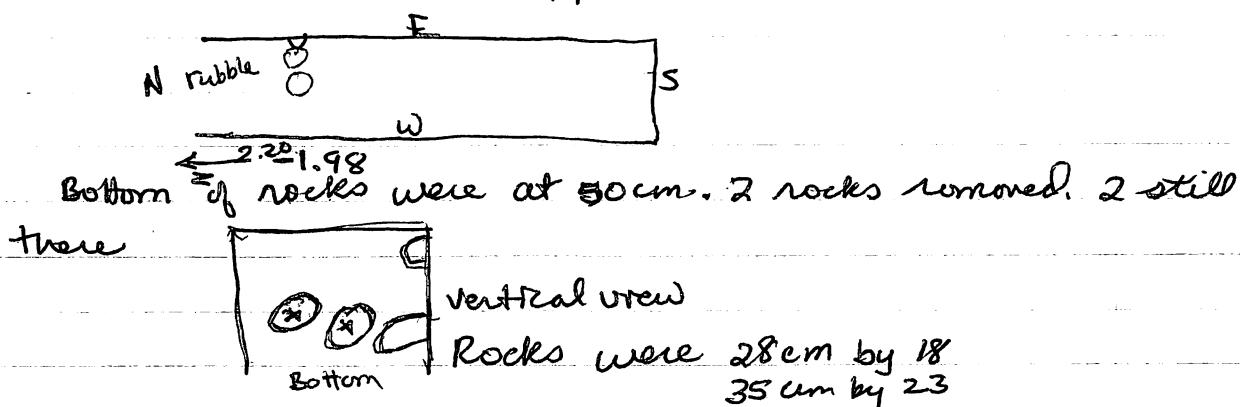 E
N rubble
S
W
2.20-1.98
Bottom of rocks were at 50cm. 2 rocks removed. 2 still
there
vertical view
Rocks were 28cm by 18
35 cm by 23
Bottom